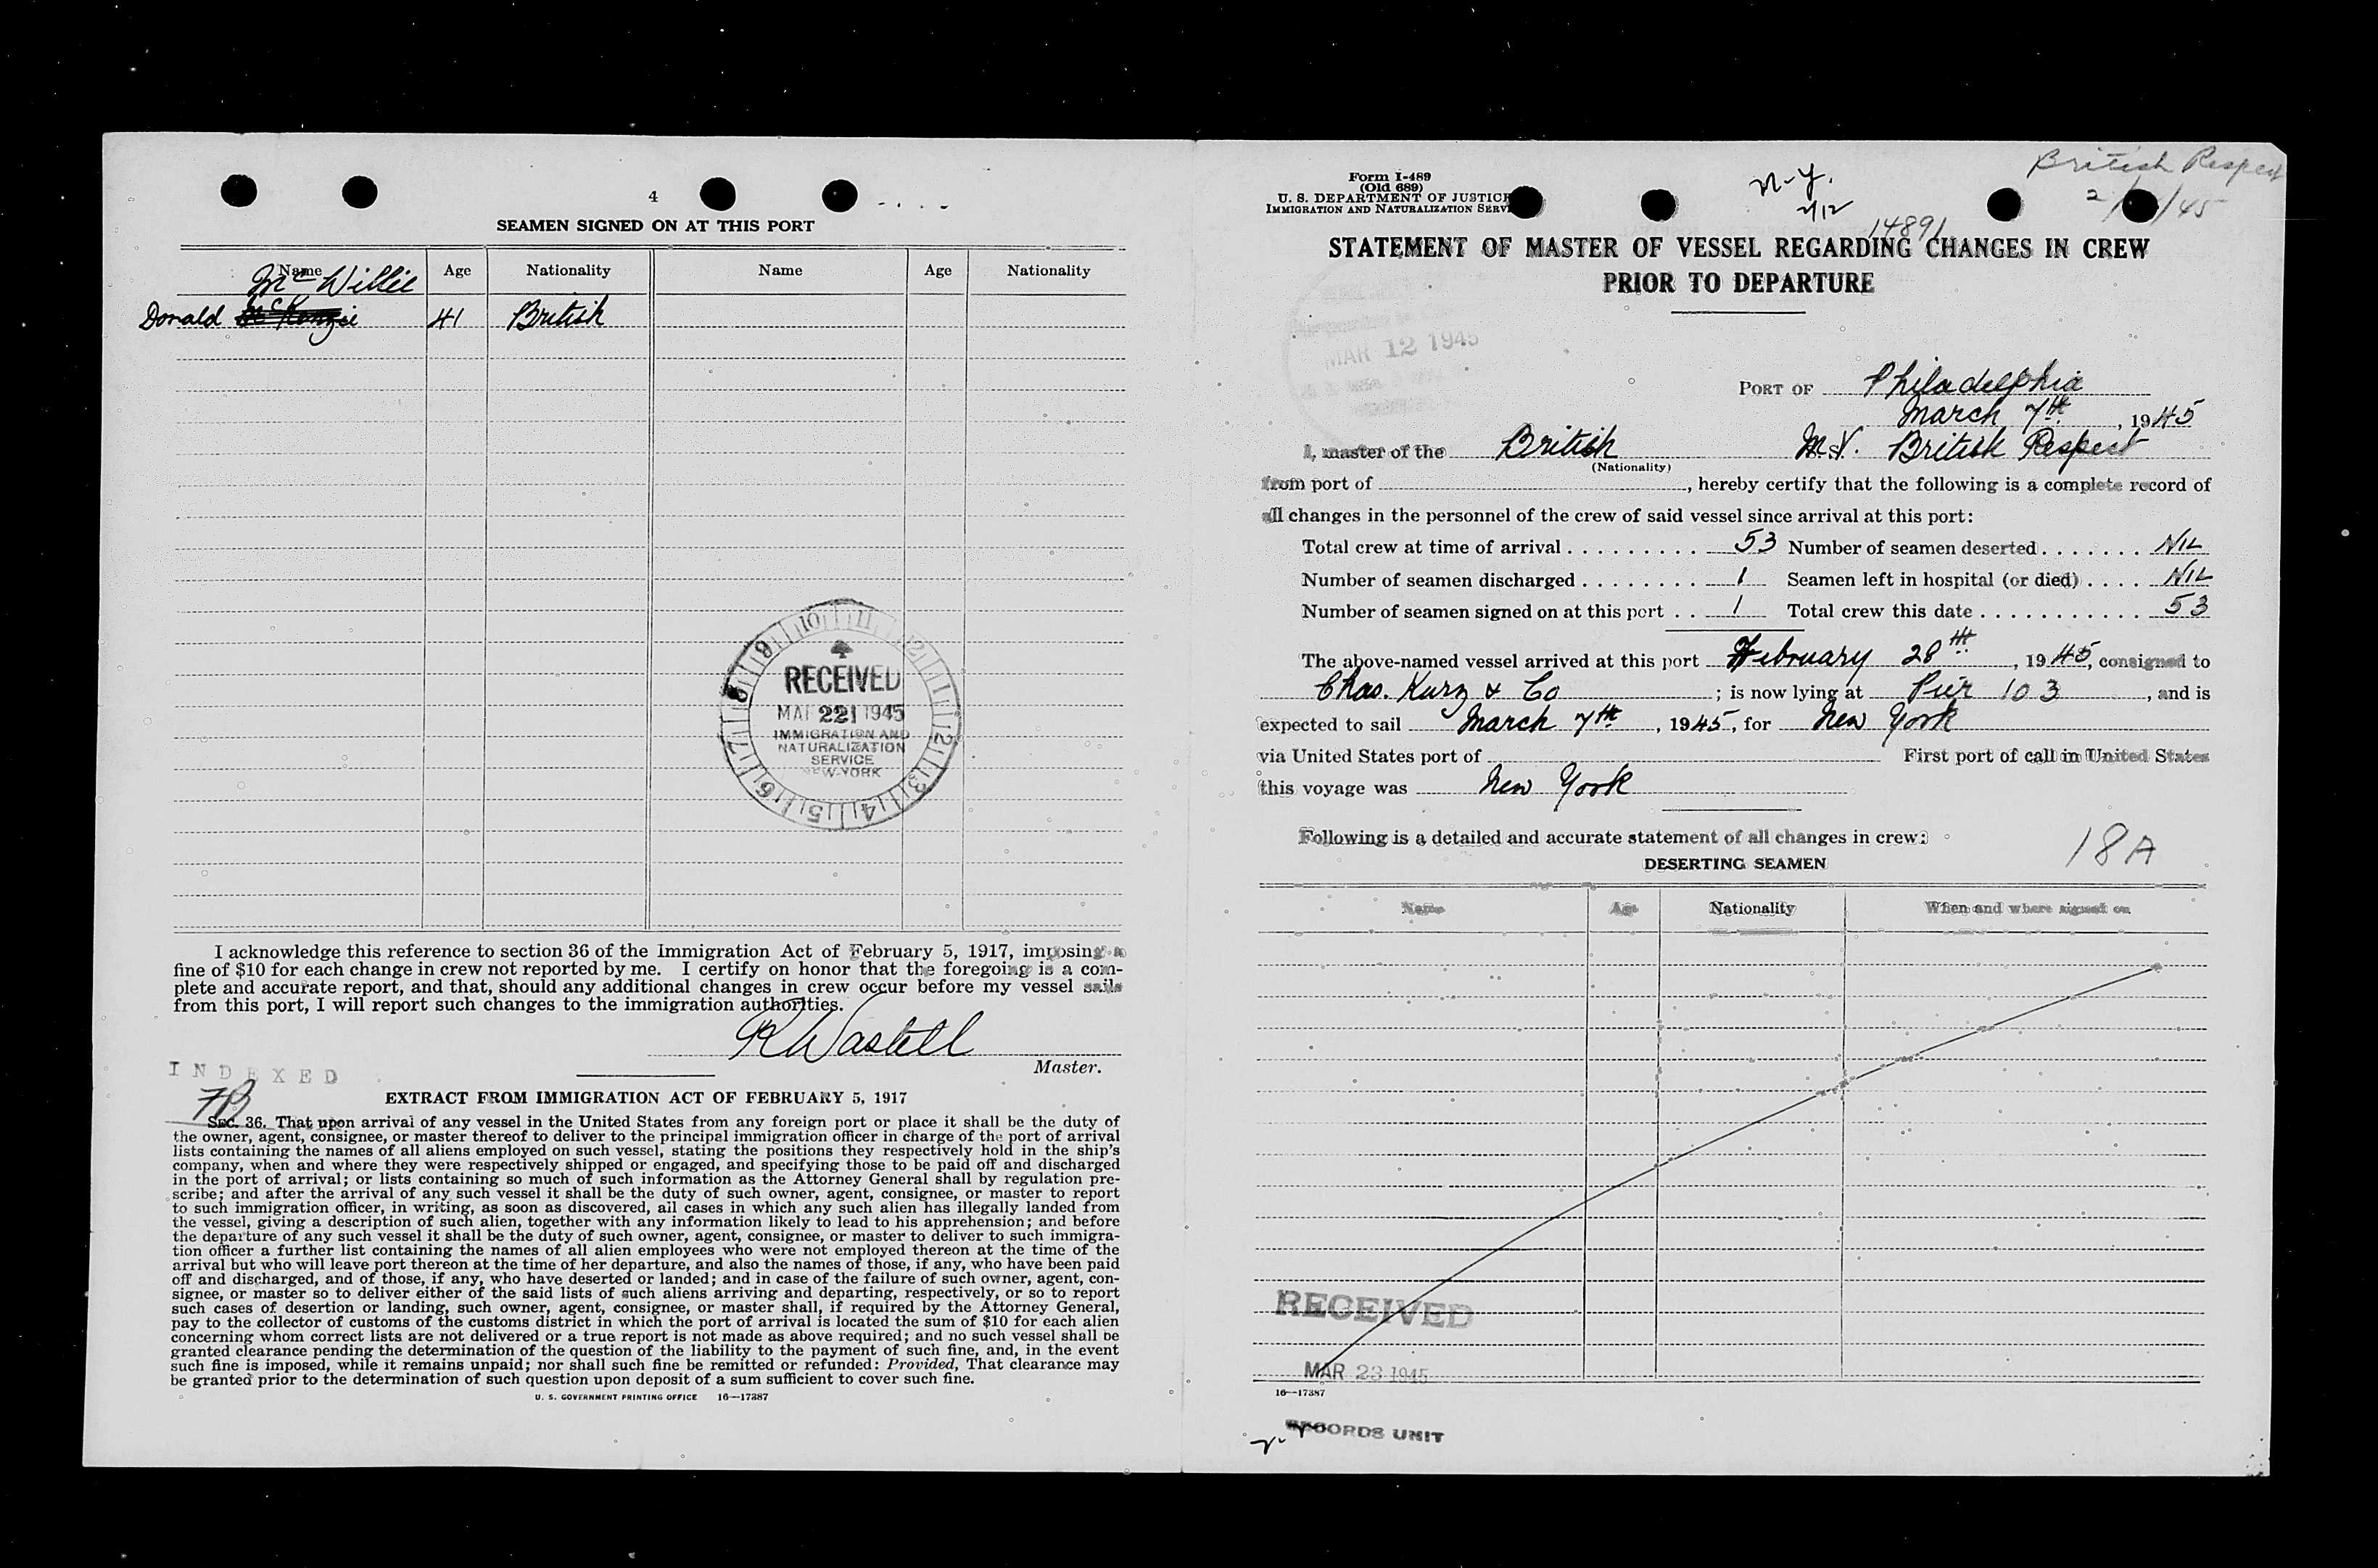 4
SEAMEN SIGNED ON AT THIS PORT
Name Age Nationality Name Age Nationality
McWillie
Donald McKenzie 41 British
10 11 12 1 2 3 4 5 6 7 8 9
RECEIVED
MAR 221 1945
IMMIGRATION AND
NATURALIZATION
SERVICE
NEW YORK
I acknowledge this reference to section 36 of the Immigration Act of February 5, 1917, imposing a
fine of $10 for each change in crew not reported by me. I certify on honor that the foregoing is a com-
plete and accurate report, and that, should any additional changes in crew occur before my vessel sails
from this port, I will report such changes to the immigration authorities.
R Wastell
Master.
INDEXED
7B
EXTRACT FROM IMMIGRATION ACT OF FEBRUARY 5, 1917
SEC. 36. That upon arrival of any vessel in the United States from any foreign port or place it shall be the duty of
the owner, agent, consignee, or master thereof to deliver to the principal immigration officer in charge of the port of arrival
lists containing the names of all aliens employed on such vessel, stating the positions they respectively hold in the ship's
company, when and where they were respectively shipped or engaged, and specifying those to be paid off and discharged
in the port of arrival; or lists containing so much of such information as the Attorney General shall by regulation pre-
scribe; and after the arrival of any such vessel it shall be the duty of such owner, agent, consignee, or master to report
to such immigration officer, in writing, as soon as discovered, all cases in which any such alien has illegally landed from
the vessel, giving a description of such alien, together with any information likely to lead to his apprehension; and before
the departure of any such vessel it shall be the duty of such owner, agent, consignee, or master to deliver to such immigra-
tion officer a further list containing the names of all alien employees who were not employed thereon at the time of the
arrival but who will leave port thereon at the time of her departure, and also the names of those, if any, who have been paid
off and discharged, and of those, if any, who have deserted or landed; and in case of the failure of such owner, agent, con-
signee, or master so to deliver either of the said lists of such aliens arriving and departing, respectively, or so to report
such cases of desertion or landing, such owner, agent, consignee, or master shall, if required by the Attorney General,
pay to the collector of customs of the customs district in which the port of arrival is located the sum of $10 for each alien
concerning whom correct lists are not delivered or a true report is not made as above required; and no such vessel shall be
granted clearance pending the determination of the question of the liability to the payment of such fine, and, in the event
such fine is imposed, while it remains unpaid; nor shall such fine be remitted or refunded: Provided, That clearance may
be granted prior to the determination of such question upon deposit of a sum sufficient to cover such fine.
U. S. GOVERNMENT PRINTING OFFICE 16—17387
Form I-489
(Old 689)
U. S. DEPARTMENT OF JUSTICE
IMMIGRATION AND NATURALIZATION SERVI
N-Y.
2/12
British Respect
2/ /45
14891
STATEMENT OF MASTER OF VESSEL REGARDING CHANGES IN CREW
PRIOR TO DEPARTURE
MAR 12 1945
PORT OF Philadelphia
March 7th, 1945
I, master of the British M.V. British Respect
(Nationality)
from port of , hereby certify that the following is a complete record of
all changes in the personnel of the crew of said vessel since arrival at this port:
Total crew at time of arrival 53 Number of seamen deserted NIL
Number of seamen discharged 1 Seamen left in hospital (or died) NIL
Number of seamen signed on at this port 1 Total crew this date 53
The above-named vessel arrived at this port February 28th, 1945, consigned to
Chas. Kurz & Co ; is now lying at Pier 103, and is
expected to sail March 7th, 1945, for New York
via United States port of First port of call in United States
this voyage was New York
Following is a detailed and accurate statement of all changes in crew:
18A
DESERTING SEAMEN
Name Age Nationality When and where signed on
RECEIVED
MAR 23 1945
16—17387
RECORDS UNIT